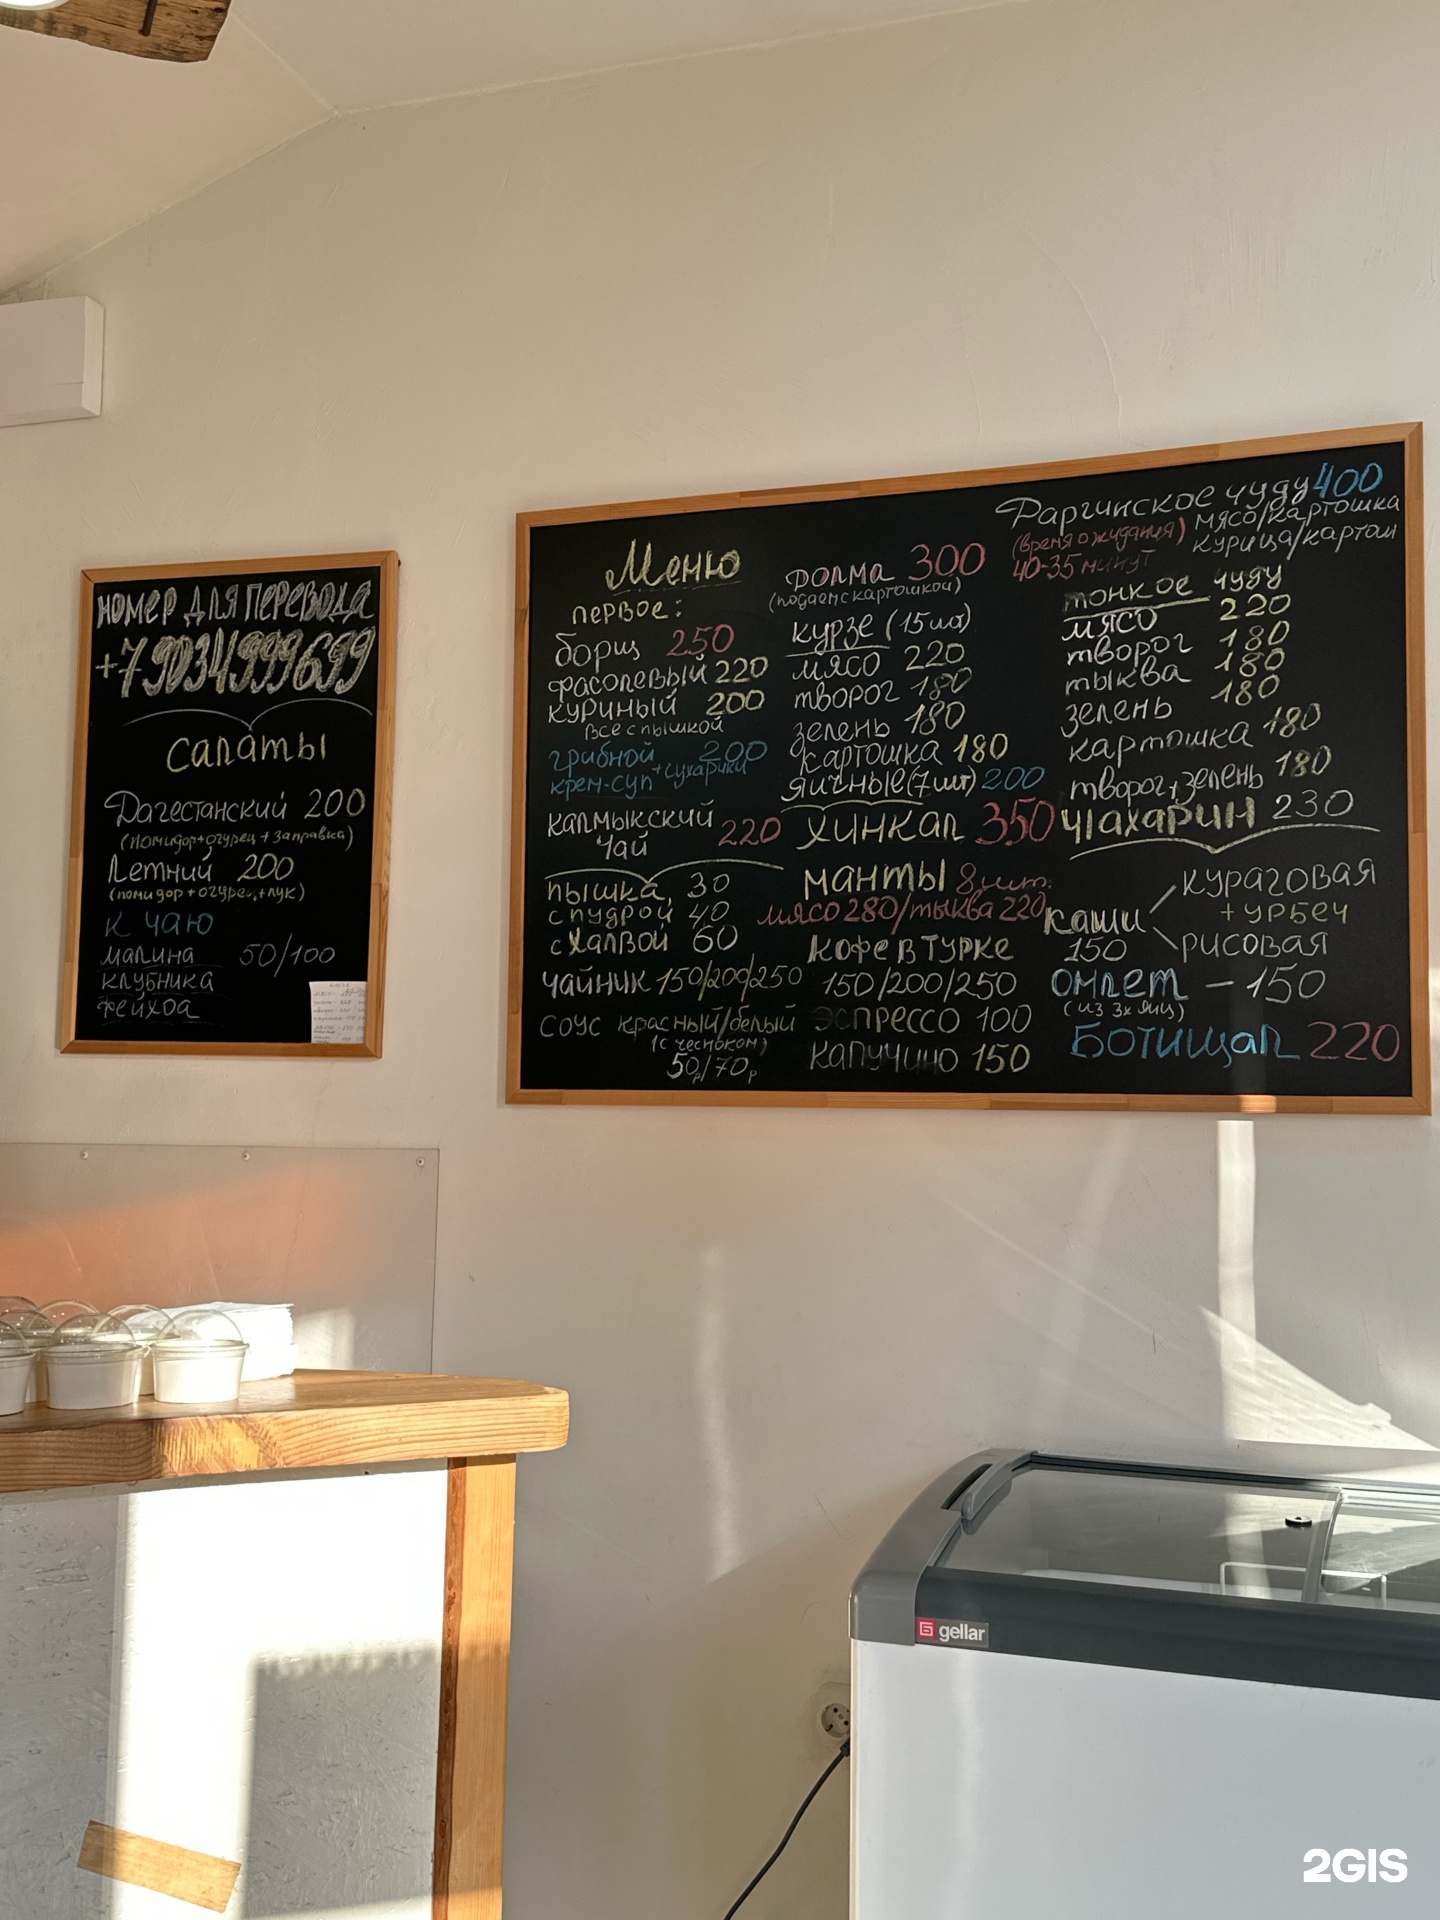 номер для перевода
+79034999699
Салаты
Дагестанский 200
(помидор+огурец+заправка)
Летний 200
(помидор+огурец+лук)
к чаю
малина 50/100
клубника
фейхоа
Меню
первое:
борщ 250
фасолевый 220
куриный 200
все с пышкой
грибной 200
крем-суп + сухарики
калмыкский 220
чай
пышка, 30
с пудрой 40
с халвой 60
чайник 150/200/250
соус красный/белый
(с чесноком)
50р/70р
долма 300
(подаем с картошкой)
курзе (15шт)
мясо 220
творог 180
зелень 180
картошка 180
яичные (7шт) 200
хинкал 350
манты 8 шт.
мясо 280/тыква 220
кофе в турке
150/200/250
эспрессо 100
капучино 150
Даргинское чуду 400
(время ожидания) мясо/картошка
40-35 минут курица/картош
тонкое чуду
мясо 220
творог 180
тыква 180
зелень 180
картошка 180
творог+зелень 180
чIахарин 230
каши кураговая
+ урбеч
150 рисовая
омлет - 150
(из 3х яиц)
Ботищал 220
gellar
2GIS